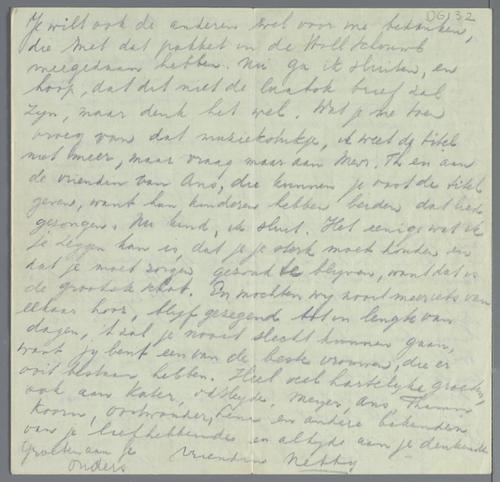 DG, 32
Je wilt ook de anderen wel voor me bedanken,
die met dat pakket in de Holl. Schouwb.
meegedaan hebben. Nu ga ik sluiten, en
hoop, dat dit niet de laatste brief zal
zyn, maar denk het wel. Wat je me toen
vroeg van dat muziekstukje, ik weet de titel
niet meer, maar vraag maar aan Mevr. Th en aan
de vrienden van Ans, die kunnen je vast de titel
geven, want hun kinderen hebben beiden dat lied
gezongen. Nu kind, ik sluit. Het eenige wat ik
je zeggen kan is, dat je je sterk moet houden en
dat je moet zorgen gezond te blyven, want dat is
de grootste schat. En mochten wy nooit meer iets van
elkaar hooren, blyf gezegend tot in lengte van
dagen, 't zal je nooit slecht kunnen gaan,
want jy bent een van de beste vrouwen, die er
ooit bestaan hebben. Heel veel hartelyke groeten,
ook aan Kater, v.d. Heyde, Meyer, Ans,
Koorn, en andere bekenden
van je liefhebbende en altyd aan je denkende
Groeten aan je vriendin Netty
ouders